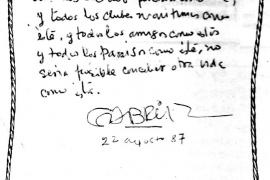 y todos los clubes nocturnos como
éste, y todos los amigos como ellos
y todos los Parazos como éste, no
sería posible concebir otra vida
como ésta.
GABRIEL
22 agosto 87